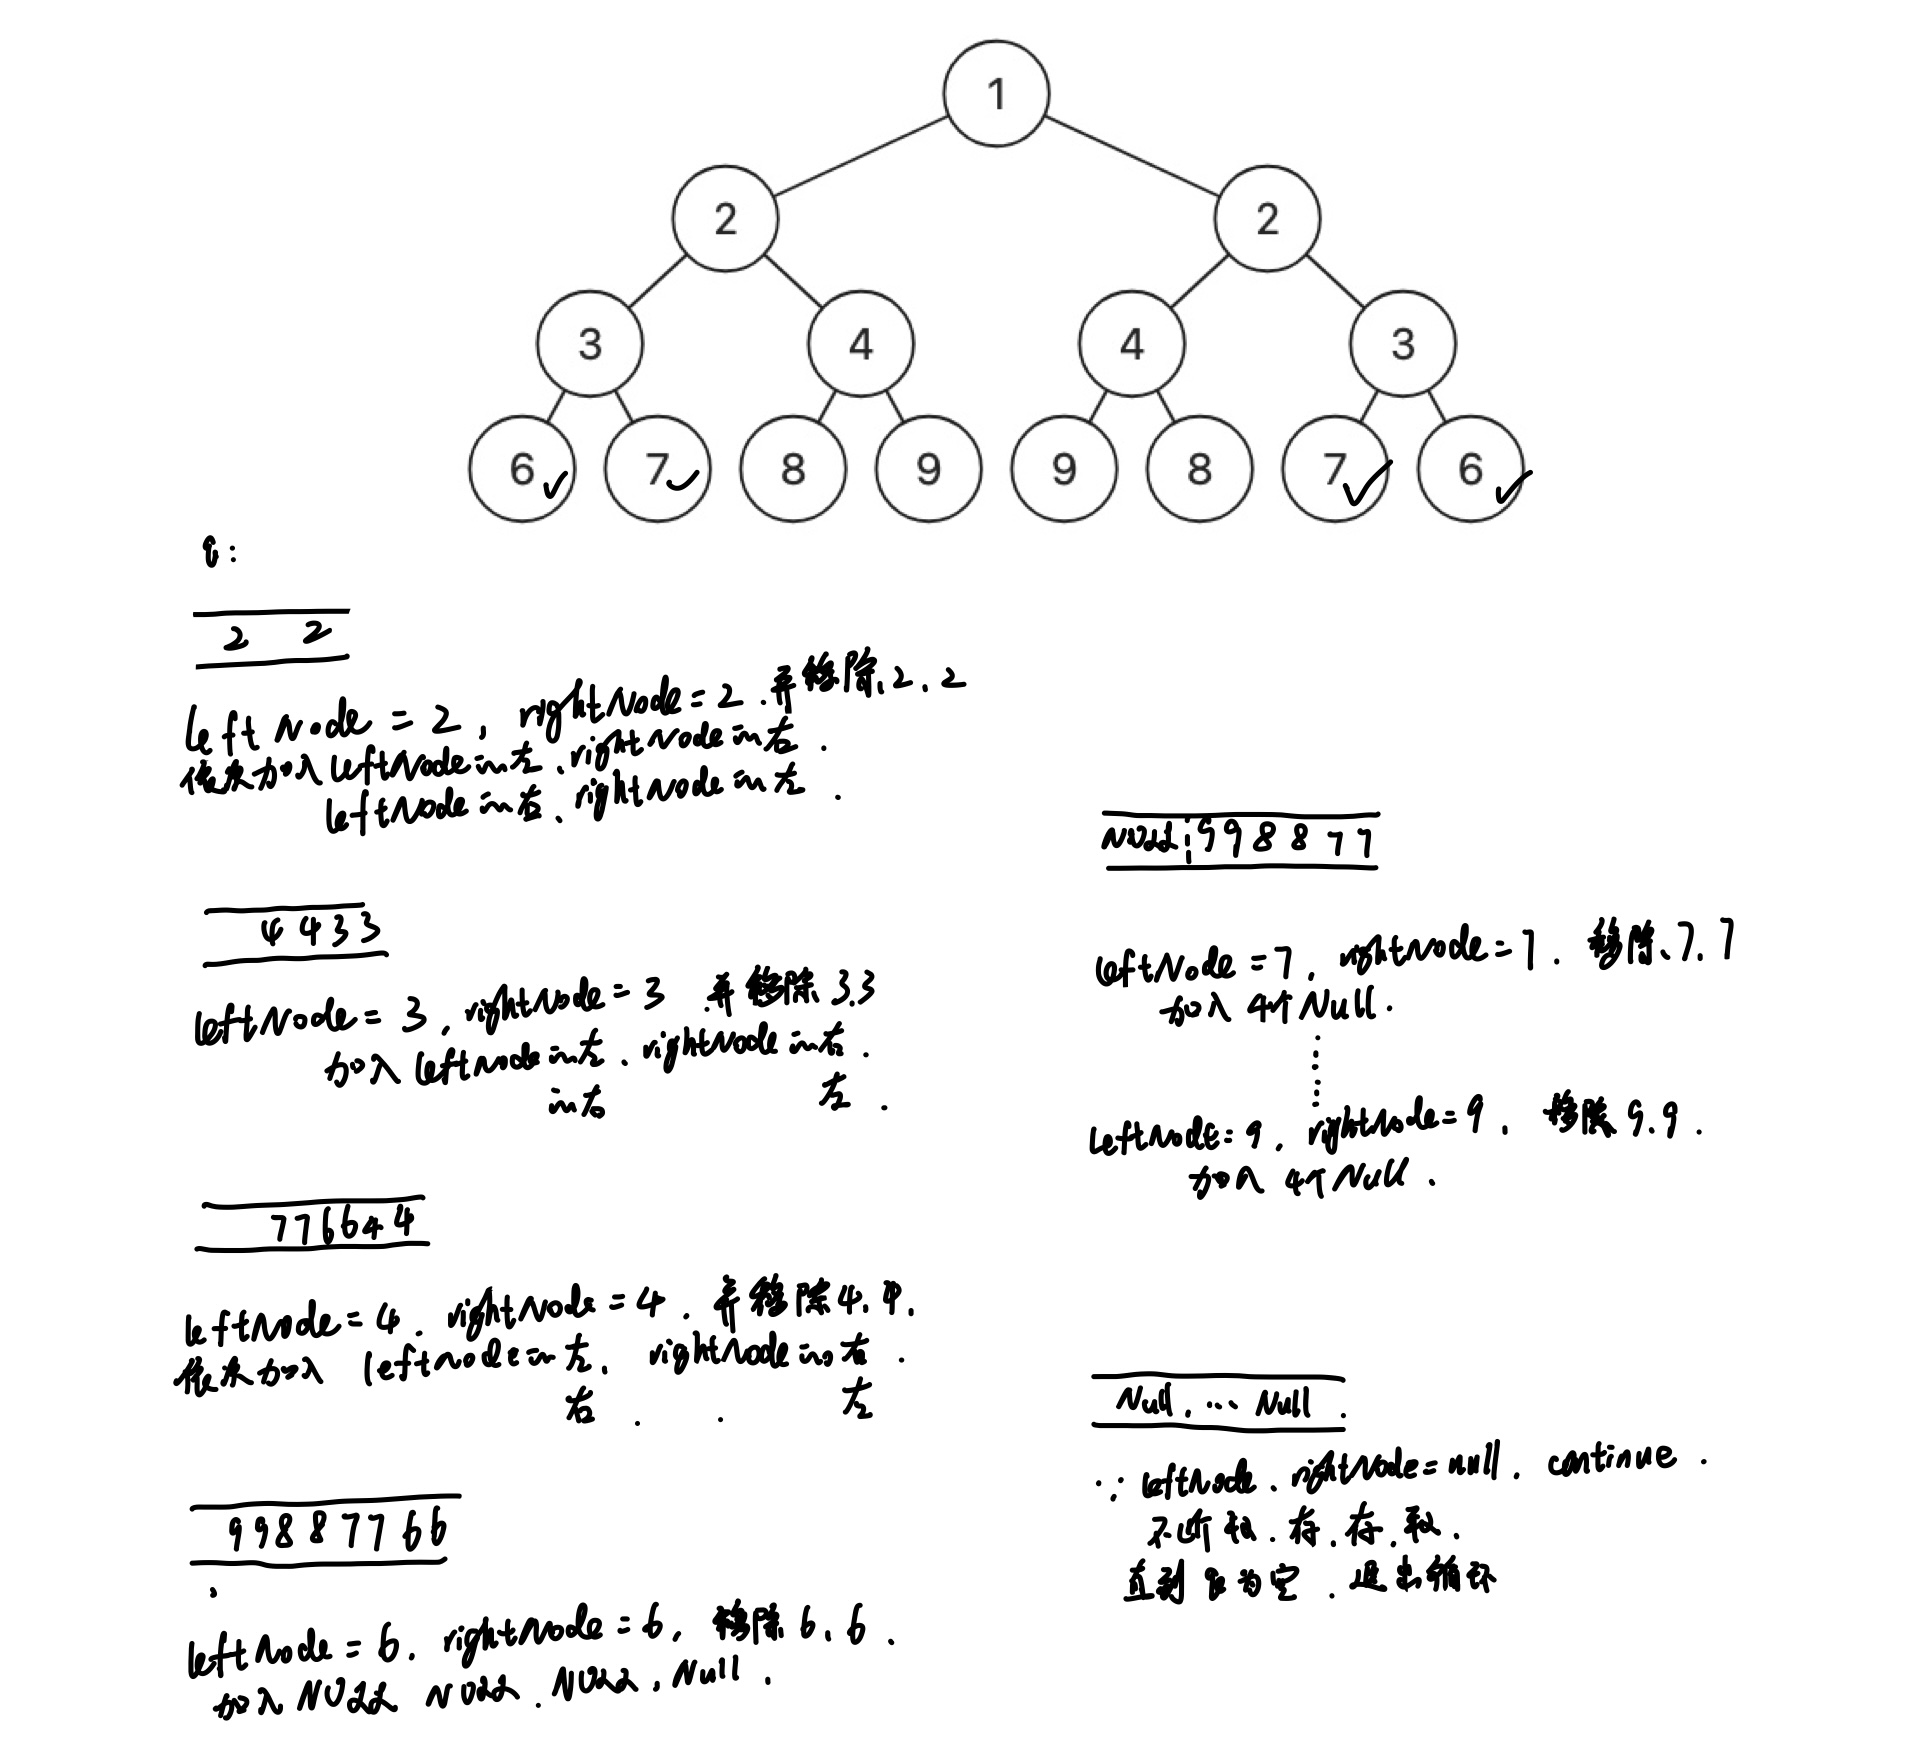 1
2 2
3 4 4 3
6 7 8 9 9 8 7 6
q:
2 2
leftNode = 2, rightNode = 2. 并移除 2、2
依次加入 leftNode的左、rightNode的右.
leftNode的右、rightNode的左.
4 4 3 3
leftNode = 3, rightNode = 3 并移除 3.3
加入 leftNode的左、rightNode的右.
的右 左.
7 7 6 6 4 4
leftNode = 4. rightNode = 4. 并移除 4.4.
依次加入 leftnode的左、rightNode的右.
右. . 左
9 9 8 8 7 7 6 6
leftNode = 6. rightNode = 6, 移除 6.6.
加入 NULL NULL. NULL, Null.
NULL 9 9 8 8 7 7
leftNode = 7, rightNode = 7. 移除、7.7
加入 4个 Null.
leftNode = 9, rightNode = 9, 移除 9.9.
加入 4个 Null.
Null, ... Null.
∵ leftNode、rightNode = null. continue.
不断取.存.存.取.
直到 q为空. 退出循环